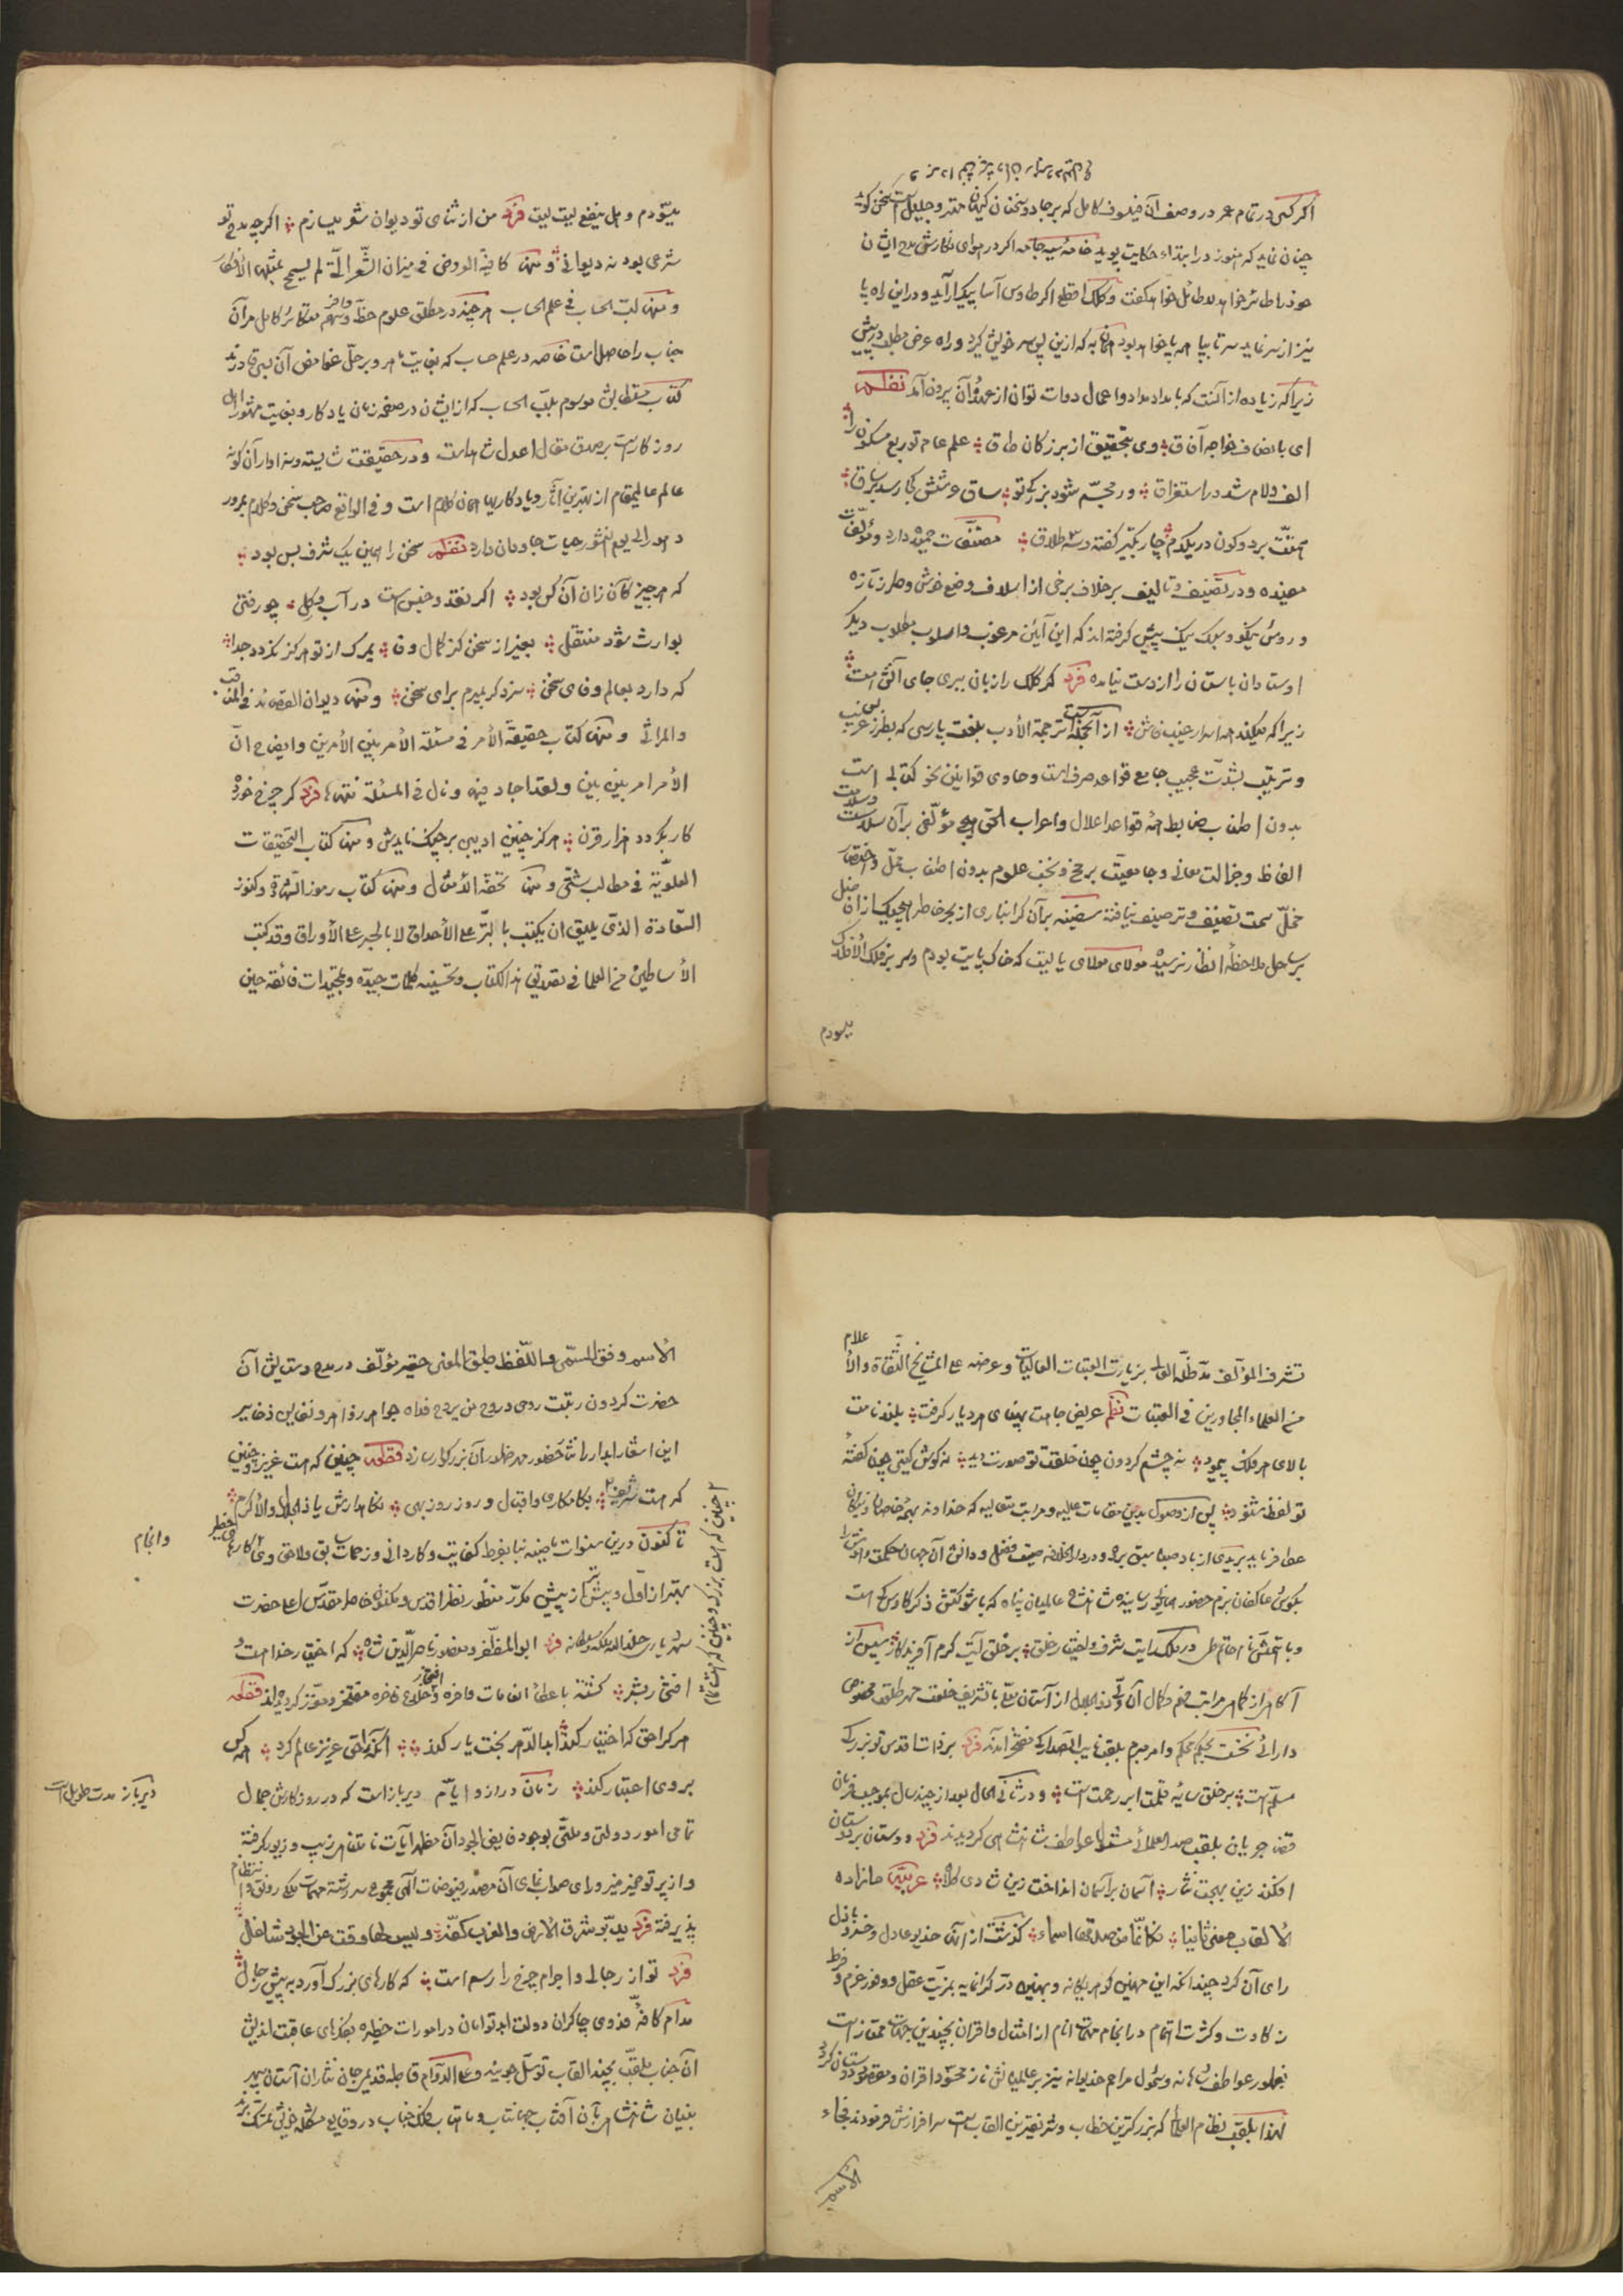 اگر کسی در تمام عمر در وصف آن فیلسوف کامل که بر جادو سخنان کیهان مقتدر و جلیل است سخن گوید
چنان نماید که هنوز در ابتداء حکایت پوید خامهٔ سیه جامه اگر در هوای نگارش مدح ایشان
خود را طائر خواهد لاطائل خواهد گفت و کلک اقطع اگر طاوس آسا پیکر آراید و در این راه پا
نیز از سر نماید سر تا بپا همه پا خواهد بود همان به که ازین پس سر خویش گیرد و راه عرض مطلب در پیش
زیرا که زیاده از آنست که بامداد مداد و اعمال دوات توان از عهدهٔ آن بیرون آمد نظم
ای با انصاف خواجه آفاق وی بتحقیق از بزرگان طاق علم عام تو ربع مسکون را
الف و لام شد در استغراق ور مجسم شود بزرگی تو ساق عرشش کجا رسد بر ساق
همتت بر دو کون در یکدم چار تکبیر گفته و سه طلاق مصنفات حمیده دارد و مؤلفات
مفیده و در تصنیف و تالیف بر خلاف برخی از اسلاف وضع خوش و طرز تازه
و روش نیکو و سبک نیک پیش گرفته اند که این آئین مرغوب و اسلوب مطلوب دیگر
اوستادان باستان را از دست نیامده فرد گر کلک را زبان ببری جای آنش است
زیرا که میکند همه اسرار غیب فاش از آنجمله است ترجمة الأدب بلغت پارسی که بطرز غریب
و ترتیب بشدت عجیب جامع قواعد صرف است و حاوی قوانین نحو کتابی است
بدون اطناب ضابط همه قواعد اعلال و اعراب الحق هیچ مؤلفی برآن سلاست
الفاظ و جزالت معانی و جامعیت برخی و نخب علوم بدون اطناب ممل و اختصار
مخل سمت تصنیف و ترصیف نیافته سفینه برآن گرانباری از بحر خاطر هیچیک از افاضل
بر ساحل ملاحظهٔ انظار نرسیده مولای مولای یا لیت که خاک پایت بودم وسر بر فلک الأفلاک
میسودم
میسودم و هل ینفع لیت لیت فرد من از ثنای تو دیوان شعر میسازم اگرچه مدح تو
شرعی بود نه دیوانی ومنها کافیة العروض فی میزان الشعر الّتی لم یسمح بمثلها الأفکار
ومنها لبّ الحساب فی علم الحساب هر چند در مطلق علوم حظّ وافر و سهم متکاثر کامل مر آن
جناب را حاصل است خاصه در علم حساب که بغایت ماهر و بر حلّ غوامض آن بسی قادرند
کتاب مستطابش موسوم بلبّ الحساب که از ایشان در صفحه زمان یادگار و بغایت مشهور اهالی
روزکار است بر صدق مقال اعدل شاهد است و در حقیقت شایسته و سزاوار آن گونه
عالم عالیمقام از بهترین آثار و یادکاریها همان کلام است و فی الواقع صاحب سخن و کلام بمرور
دهور الی یوم النشور حیات جاودان دارد نظم سخن را همین یک شرف بس بود
که هر چیز کآن زان آن کس بود اگر نقد و جنس است در آب و کل چو رفتی
بوارث شود منتقل بغیر از سخن کز کمال وفا بمرک از تو هرکز نکردد جدا
که دارد بعالم وفای سخن سزد کر بمیرم برای سخن ومنها دیوان القصائد فی المناقب
والمراثی ومنها کتاب حقیقة الأمر فی مسئلة الأمر بین الأمرین وایضاح انّ
الأمر امر بین بین ولقد اجاد فیه ونال فی المسئلة نفسها فرد کر چرخ خورد
کار بکردد هزار قرن هرکز چنین ادیبی بر چنگ نایدش ومنها کتاب التحقیقات
العلویّة فی مطالب شتّی ومنها تحفة الأمثال ومنها کتاب رموز الشهادة وکنوز
السّعادة الذی یلیق ان یکتب بالتبر علی الأحداق لا بالحبر علی الأوراق وقد کتب
الأساطین من العلما فی تصدیق هذا الکتاب وتحسینه کلمات جیّده وتمجیدات فائقه حین
تشرف المؤلف مدّ ظلّه العالی بزیارت العتبات العالیات وعرضه علی المشایخ الثّقاة والأعلام
من العلماء المجاورین فی العتبات نظم عریض جامت پهنای هر دیار کرفت بلند نامت
بالای هر فلک پیمود نه چشم کردون چون خلقت تو صورت دید نه کوش کیتی چون گفتهٔ
تو لفظ شنود پس از وصول بدین مقامات عالیه و مراتب متعالیه که خداوند بهمهٔ خاصان و نیکان
عطا فرماید بریدی از باد صبا سبق برده و در دار الخلافه صیت فضل و دانش آن جهان حکمت و دانش را
بگوش عاکفان بزم حضور رسانیده شاهنشاه عالمیان پناه که
آگاهی از کما هی مراتب فهم و کمال آن از آستان معلّی با تشریف خلعت مهر طلعت مخصوص
مسلم است بر خلق سایهٔ قلمت ابر رحمت است و در ثانی الحال بعد از چند سال بموجب فرمان
قضا جریان بلقب صدر العلمائی مشمول عواطف شاهنشاهی کردیدند فرد دوستان بر دوستان
افکند زین بهجت نثار آسمان بر آسمان انداخت زین شادی کلاه عربیّة ما زاده
الألقاب معنی ثانیا فکانّما من صدقها اسماء گذشته از آنکه خدیو عادل و خسرو باذل
رای آن کرد چندانکه این مهین گوهر یگانه و بهین در گرانمایه بمزیّت عقل و وفور عزم و فرط
ذکاوت و کثرت اهتمام در انجام مهام انام از امثال و اقران بچندین جهت ممتاز است
بظهور عواطف شاهانه و شمول مراحم خدیوانه نیز بر عالمیانش
لهذا بلقب نظام العلما که بزرگترین خطاب و شریفترین القاب است سرافرازش فرمودند فجاء
الاسم
الاسم وفق المسمّی واللّفظ طبق المعنی حقیر مؤلّف در مدح و ستایش آن
حضرت کردون رتبت روحی و روح من یروح فداه جواهر زواهر و نفایس ذخایر
این اشعار آبدار را نثار حضور مهر ظهور آن بزرگوار سازد قطعه چنین که هست عزیز و چنین
که هست شریف بکامکاری و اقبال و روز روز بهی نکاهدارش یا ذا الجلال والأکرام
تا کنون درین سنوات ماضیه نیابفرط کفایت و کاردانی و زحمات سابق و لاحق و
بهتر از اوّل و بیشتر از پیش مکرّر منظور نظر اقدس و مکنون خاطر مقدّس اعلیحضرت
شهریاری خلد الله ملکه و سلطانه فرد ابو المظفّر و منصور ناصر الدّین شاه که اختیار خدا است و
افتخار بشر کشته باعطای انعامات وافره و خلاع فاخره مفتخر و معزّز کردیده اند قطعه
هر کرا حق که اختیار کند ابد الدّهر بخت یار کند آنکه را حق عزیز عالم کرد همه کس
بروی اعتبار کند زمان دراز و ایام دیرباز است که در روزکارش جمال
تمامی امور دولتی و ملتی بوجود فایض الجود آن مظهر آیات نامتناهی زیب و زیور گرفته
و از پرتو ضمیر منیر و رای صواب نمای آن مصدر فیوضات آلهی مجموع سررشتهٔ مهمات ملکی رونق و انتظام
پذیرفته فرد یدبّر شرق الأرض والغرب کفّه ولیس لها وقت عن الجود شاغل
فرد تو از رجالی و اجرام چرخ را رسم است که کارهای بزرک آورد به پیش رجال
مدام کافهٔ فدوی چاکران دولت ابد توامان در امورات خطیره بفکرهای عاقبت اندیش
آن جناب ملقّب بچند القاب توسّل جویند و علی الدّوام قاطبه قدیم جان نثاران آستان سپهر
بنیان شاهنشاهی بآن آفتاب جهانتاب و ماهتاب فلک جناب در وقایع مشکله خویش تمسّک
وانجام
دیرباز مدت طویل است